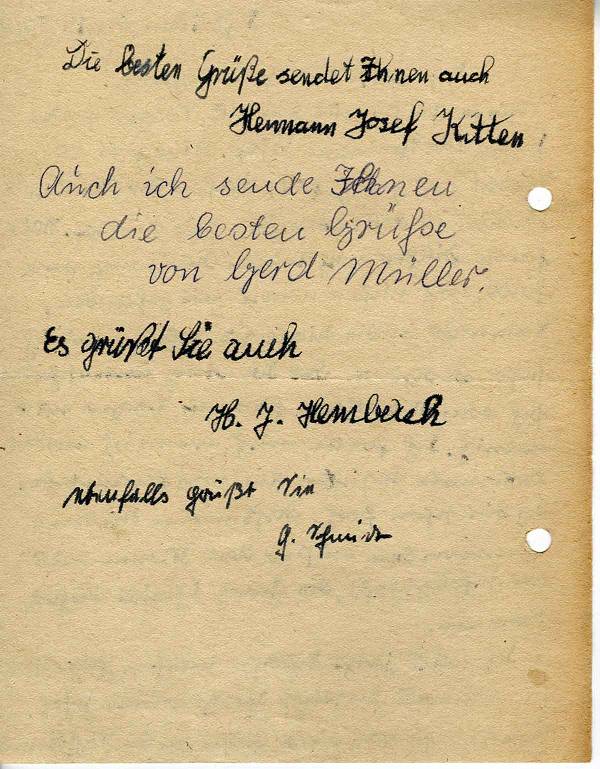 Die besten Grüße sendet Ihnen auch
Hermann Josef Kitten
Auch ich sende Ihnen
die besten Grüße
von Gerd Müller.
Es grüßt Sie auch
H. J. Hembach
ebenfalls grüßt Sie
G. Schmidt